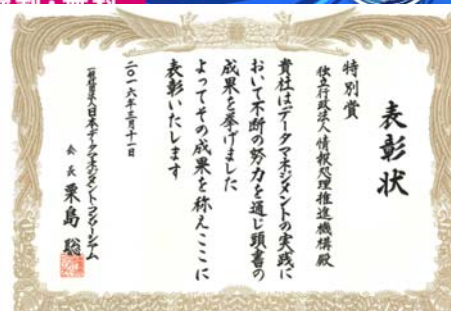 表彰状
特別賞
独立行政法人情報処理推進機構殿
貴社はデータマネジメントの実践に
おいて不断の努力を通じ顕書の
成果を挙げました
よってその成果を称えここに
表彰いたします
二〇一六年三月十一日
一般社団法人日本データマネジメント・コンソーシアム
会長 栗島聡